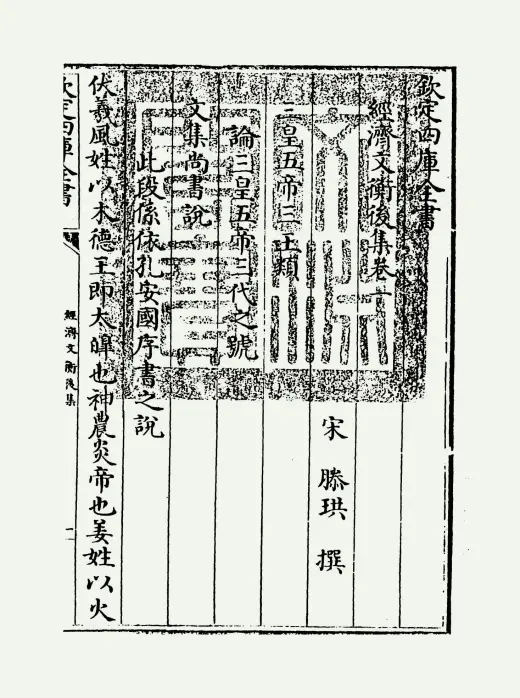 欽定四庫全書
經濟文衡後集卷一
宋 滕珙 撰
三皇五帝三王類
論三皇五帝三代之號
文集尚書說
此段係依孔安國序書之說
伏羲風姓以木德王即太皞也神農炎帝也姜姓以火
欽定四庫全書
經濟文衡後集
一